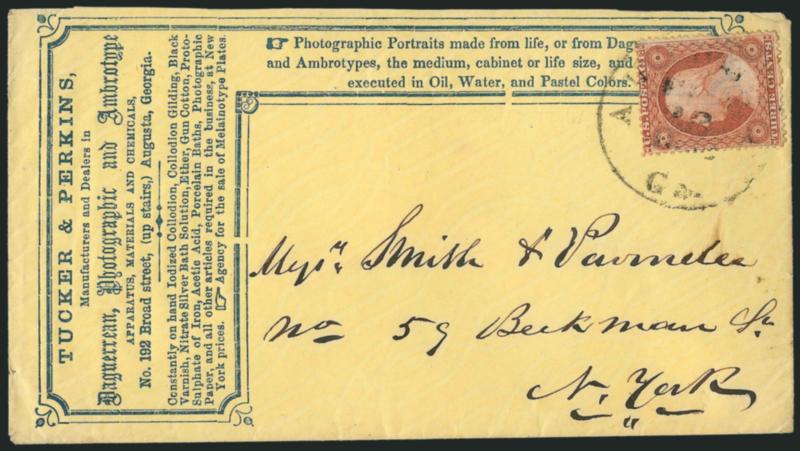 TUCKER & PERKINS,
Manufacturers and Dealers in
Daguerrean, Photographic and Ambrotype
APPARATUS, MATERIALS AND CHEMICALS,
No. 192 Broad street, (up stairs,) Augusta, Georgia.
Constantly on hand Iodized Collodion, Collodion Gilding, Black
Varnish, Nitrate Silver Bath Solution, Ether, Gun Cotton, Proto-
Sulphate of Iron, Acetic Acid, Porcelain Baths, Photographic
Paper, and all other articles required in the business, at New
York prices. ☞ Agency for the sale of Melainotype Plates.
☞ Photographic Portraits made from life, or from Dag
and Ambrotypes, the medium, cabinet or life size, and
executed in Oil, Water, and Pastel Colors.
U.S. POSTAGE
THREE CENTS
A
Ga
Messrs Smith &
No 59 Beekman St
N. York